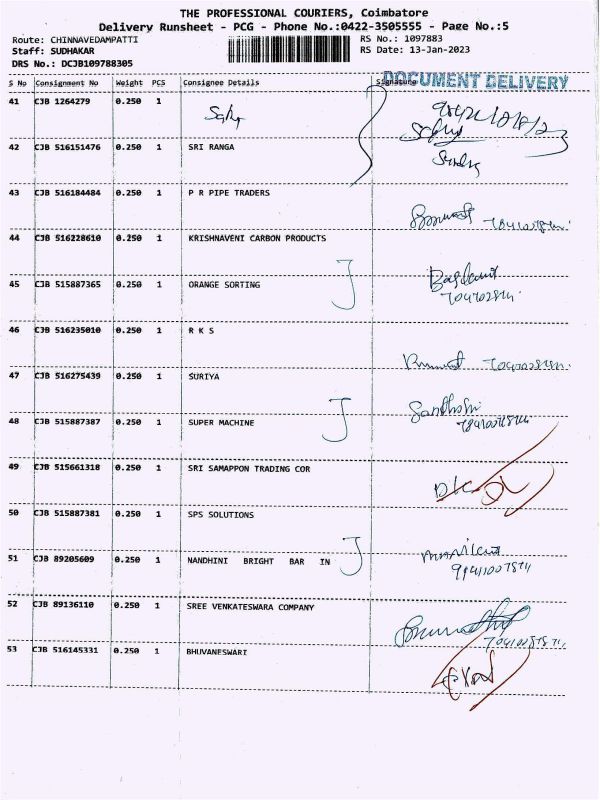 THE PROFESSIONAL COURIERS, Coimbatore
Delivery Runsheet - PCG - Phone No.:0422-3505555 - Page No.:5
Route: CHINNAVEDAMPATTI RS No.: 1097883
Staff: SUDHAKAR RS Date: 13-Jan-2023
DRS No.: DCJB109788305
DOCUMENT DELIVERY
S No Consignment No Weight PCS Consignee Details Signature
41 CJB 1264279 0.250 1
42 CJB 516151476 0.250 1 SRI RANGA
43 CJB 516184484 0.250 1 P R PIPE TRADERS
44 CJB 516228610 0.250 1 KRISHNAVENI CARBON PRODUCTS
45 CJB 515887365 0.250 1 ORANGE SORTING
46 CJB 516235010 0.250 1 R K S
47 CJB 516275439 0.250 1 SURIYA
48 CJB 515887387 0.250 1 SUPER MACHINE
49 CJB 515661318 0.250 1 SRI SAMAPPON TRADING COR
50 CJB 515887381 0.250 1 SPS SOLUTIONS
51 CJB 89205609 0.250 1 NANDHINI BRIGHT BAR IN
52 CJB 89136110 0.250 1 SREE VENKATESWARA COMPANY
53 CJB 516145331 0.250 1 BHUVANESWARI